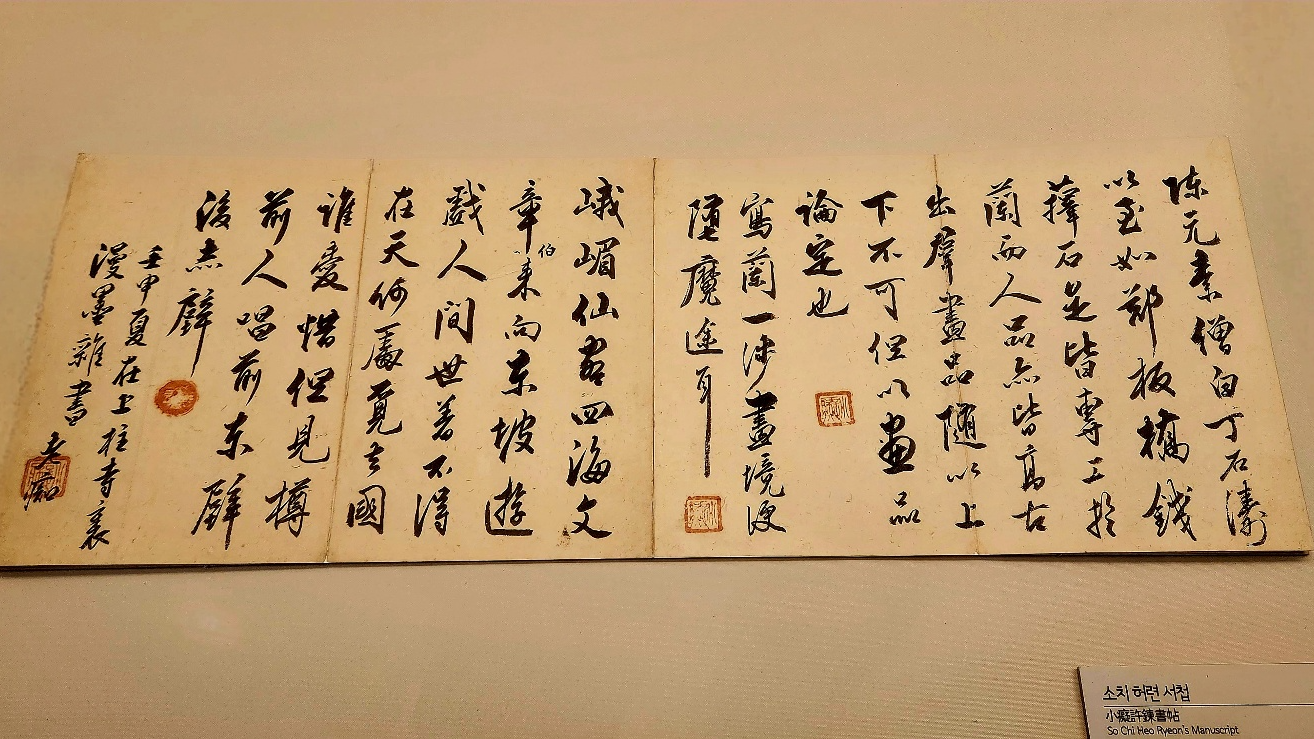 陳元素僧白丁石濤
以至如鄭板橋錢
蘀石是皆專工於
蘭而人品亦皆高古
出羣畫品隨以上
下不可但以画品
論定也
寫蘭一涉畫境便
墮魔途耳
峨嵋仙客四海文
章伯来向東坡遊
戲人間世着不得
在天何處覓去國
誰愛惜但見樽
前人唱前赤壁
後赤壁
壬申夏在上柱寺裏
漫墨雜書 老痴
소치 허련 서첩
小癡許鍊書帖
So Chi Heo Ryeon's Manuscript